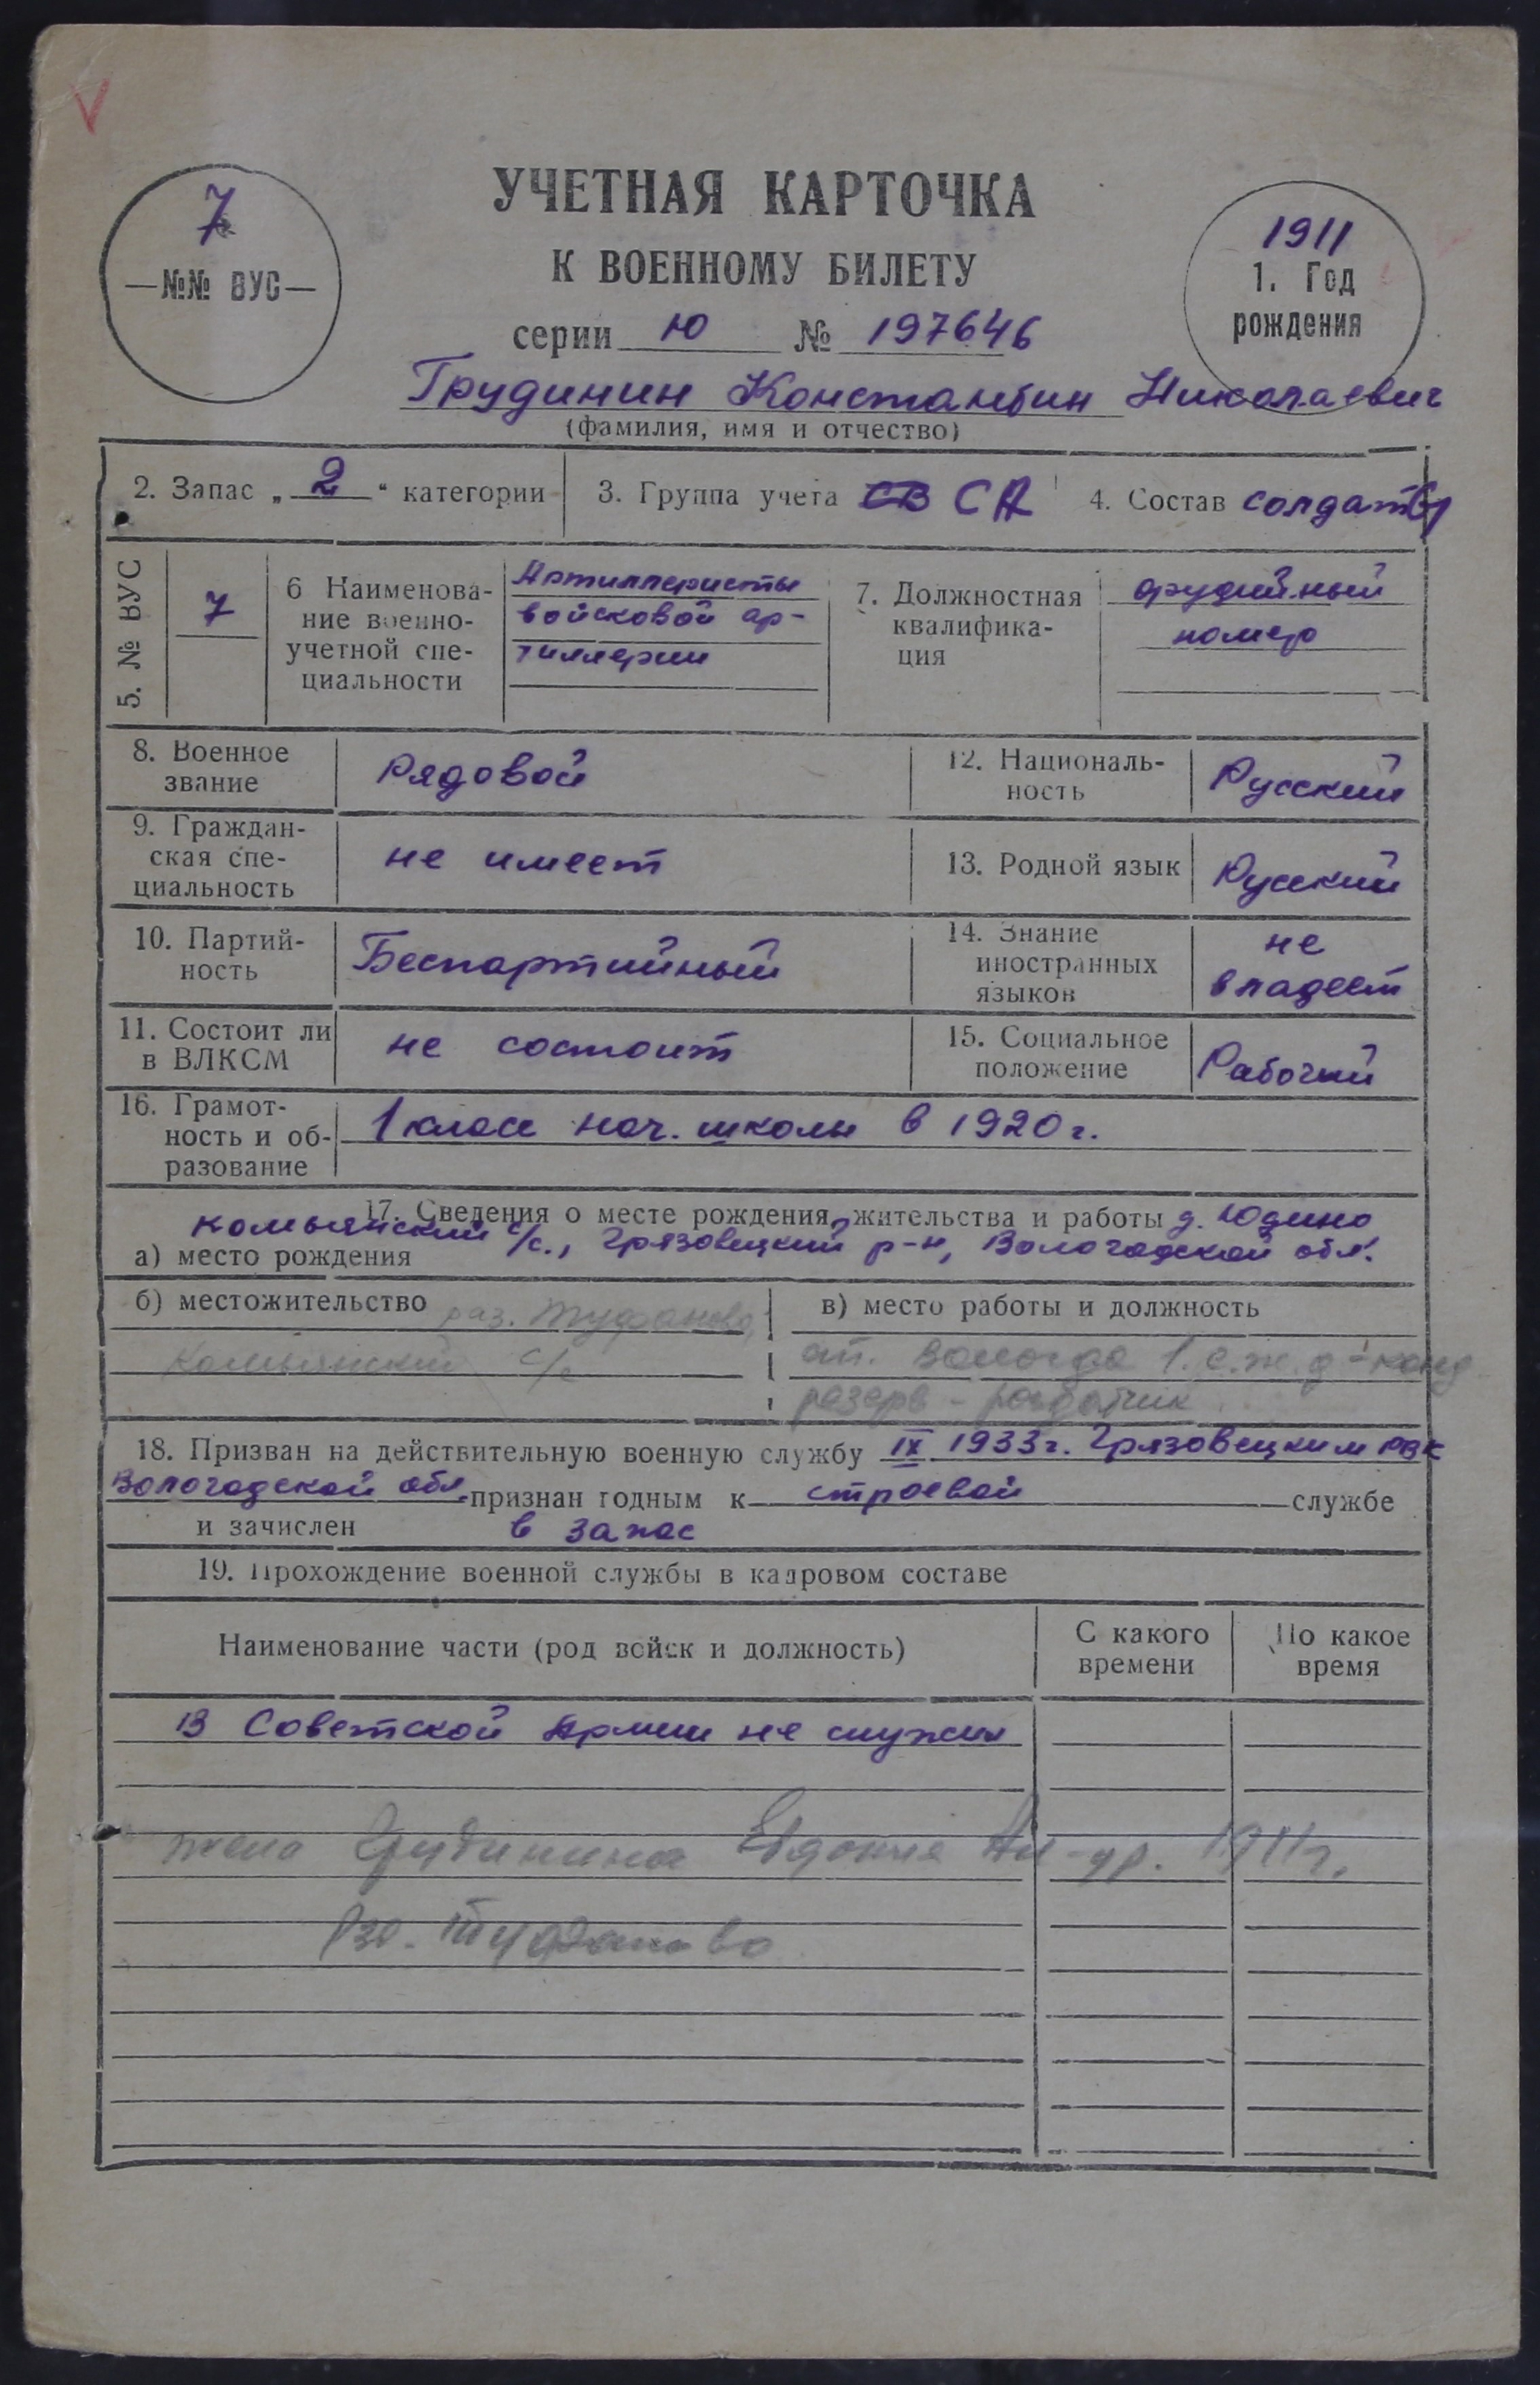 7
—№№ ВУС—
УЧЕТНАЯ КАРТОЧКА
К ВОЕННОМУ БИЛЕТУ
серии Ю № 197646
1911
1. Год
рождения
Грудинин Константин Николаевич
(фамилия, имя и отчество)
2. Запас „ 2 “ категории
3. Группа учета СВ СА
4. Состав солдаты
5. № ВУС
7
6 Наименова-
ние военно-
учетной спе-
циальности
Артиллеристы
войсковой ар-
тиллерии
7. Должностная
квалифика-
ция
орудийный
номер
8. Военное
звание
Рядовой
12. Националь-
ность
Русский
9. Граждан-
ская спе-
циальность
не имеет
13. Родной язык
Русский
10. Партий-
ность
Беспартийный
14. Знание
иностранных
языков
не
владеет
11. Состоит ли
в ВЛКСМ
не состоит
15. Социальное
положение
Рабочий
16. Грамот-
ность и об-
разование
1 класс нач. школы в 1920 г.
17. Сведения о месте рождения, жительства и работы д. Юдино
Комьянский с/с., Грязовецкий р-н, Вологодской обл.
а) место рождения
б) местожительство раз. Туфаново,
Комьянский с/с
в) место работы и должность
ст. Вологда 1. с.ж.д - конд
резерв - раздатчик
18. Призван на действительную военную службу IX 1933 г. Грязовецким РВК
Вологодской обл. признан годным к строевой службе
и зачислен в запас
19. Прохождение военной службы в кадровом составе
Наименование части (род войск и должность)
С какого
времени
По какое
время
В Советской Армии не служил
жена Грудинина Евдокия Ал-др. 1911 г.
Рзд. Туфаново